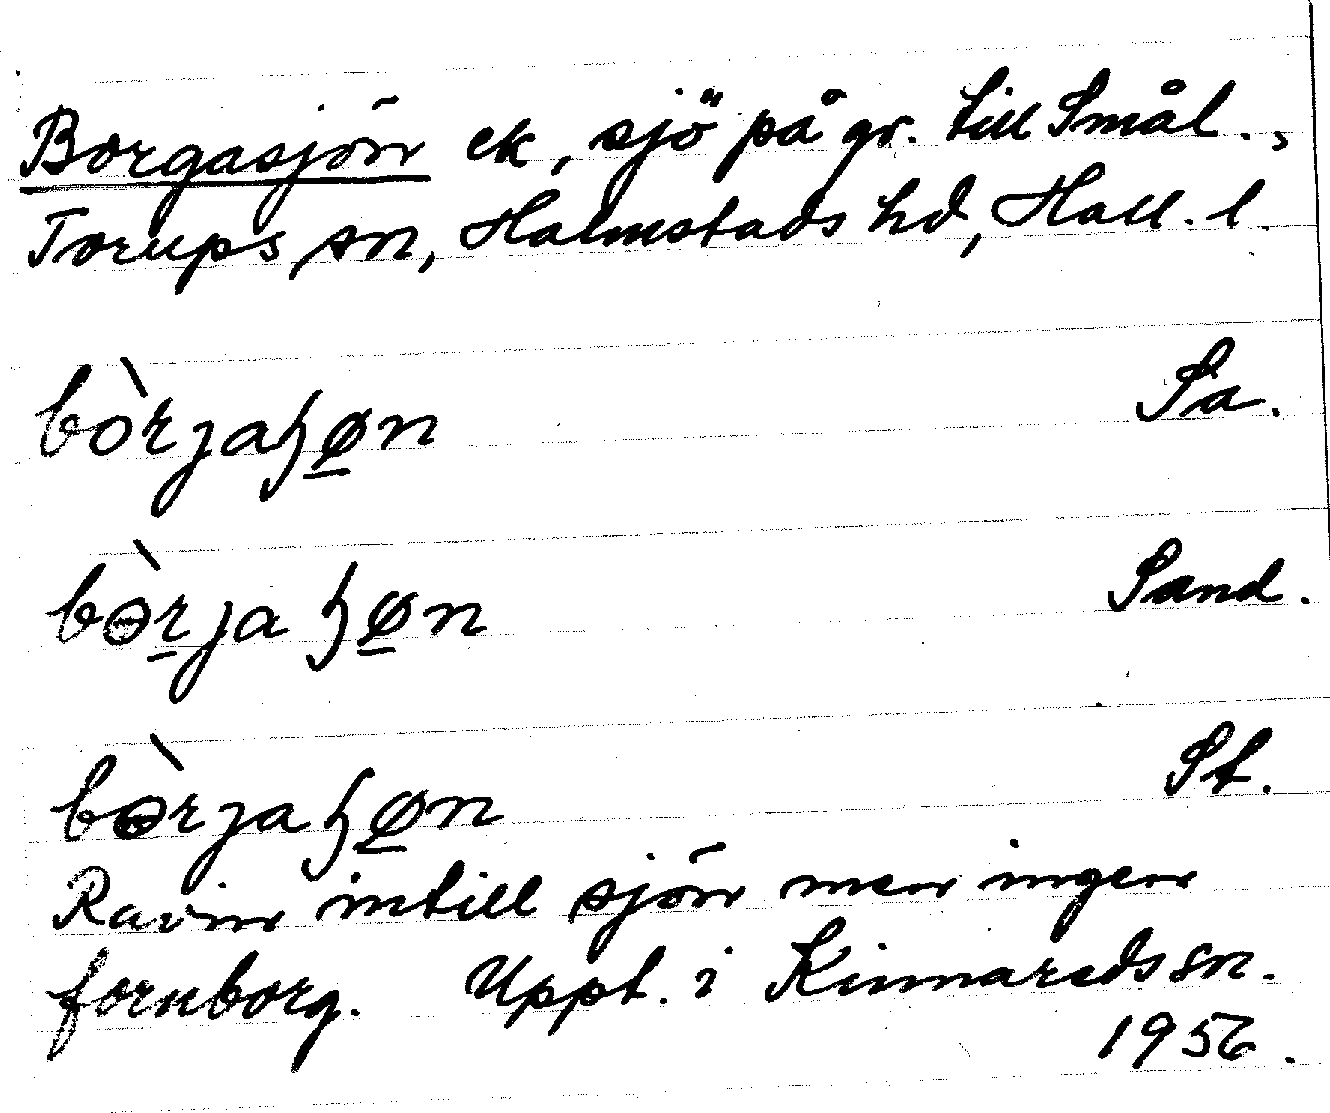 Borgasjön ek, sjö på gr. till Smål.,
Torups sn, Halmstads hd, Hall. l.
bòrjaɧø̲n Sa.
bɵ̀r̲ja ɧø̲n Sand.
bɵ̀rjaɧø̲n St.
Ravin intill sjön men ingen
fornborg. Uppt. i Kinnareds sn.
1956.